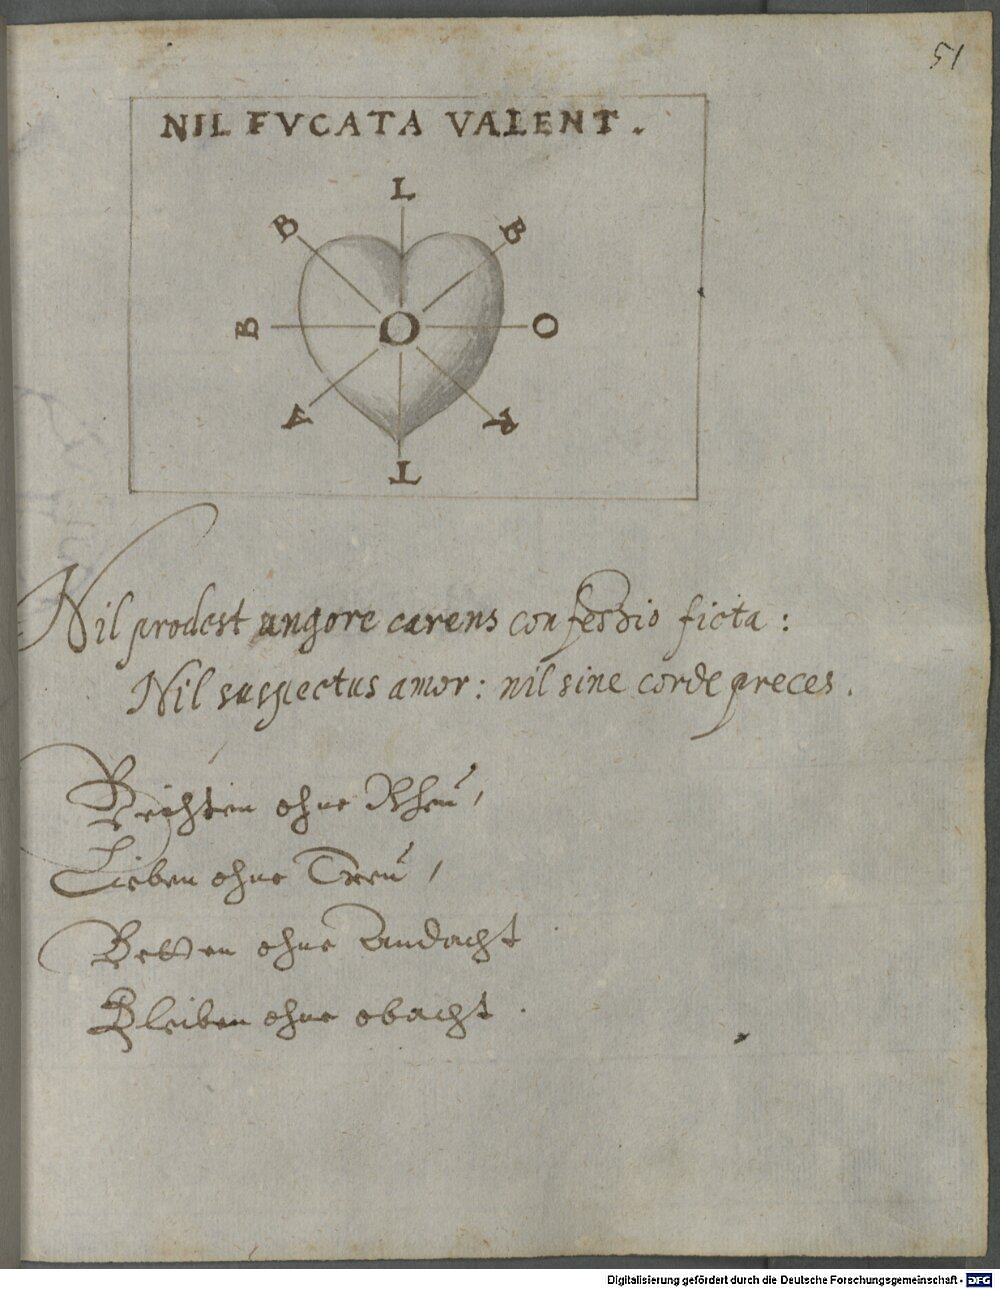 51
NIL FVCATA VALENT.
L
B B
B O O
A R
T
Nil prodest angore carens confessio ficta:
Nil suspectus amor: nil sine corde preces.
Beichten ohne Rheu,
Lieben ohne Treu,
Betten ohne Andacht
Bleiben ohne obacht.
Digitalisierung gefördert durch die Deutsche Forschungsgemeinschaft - DFG